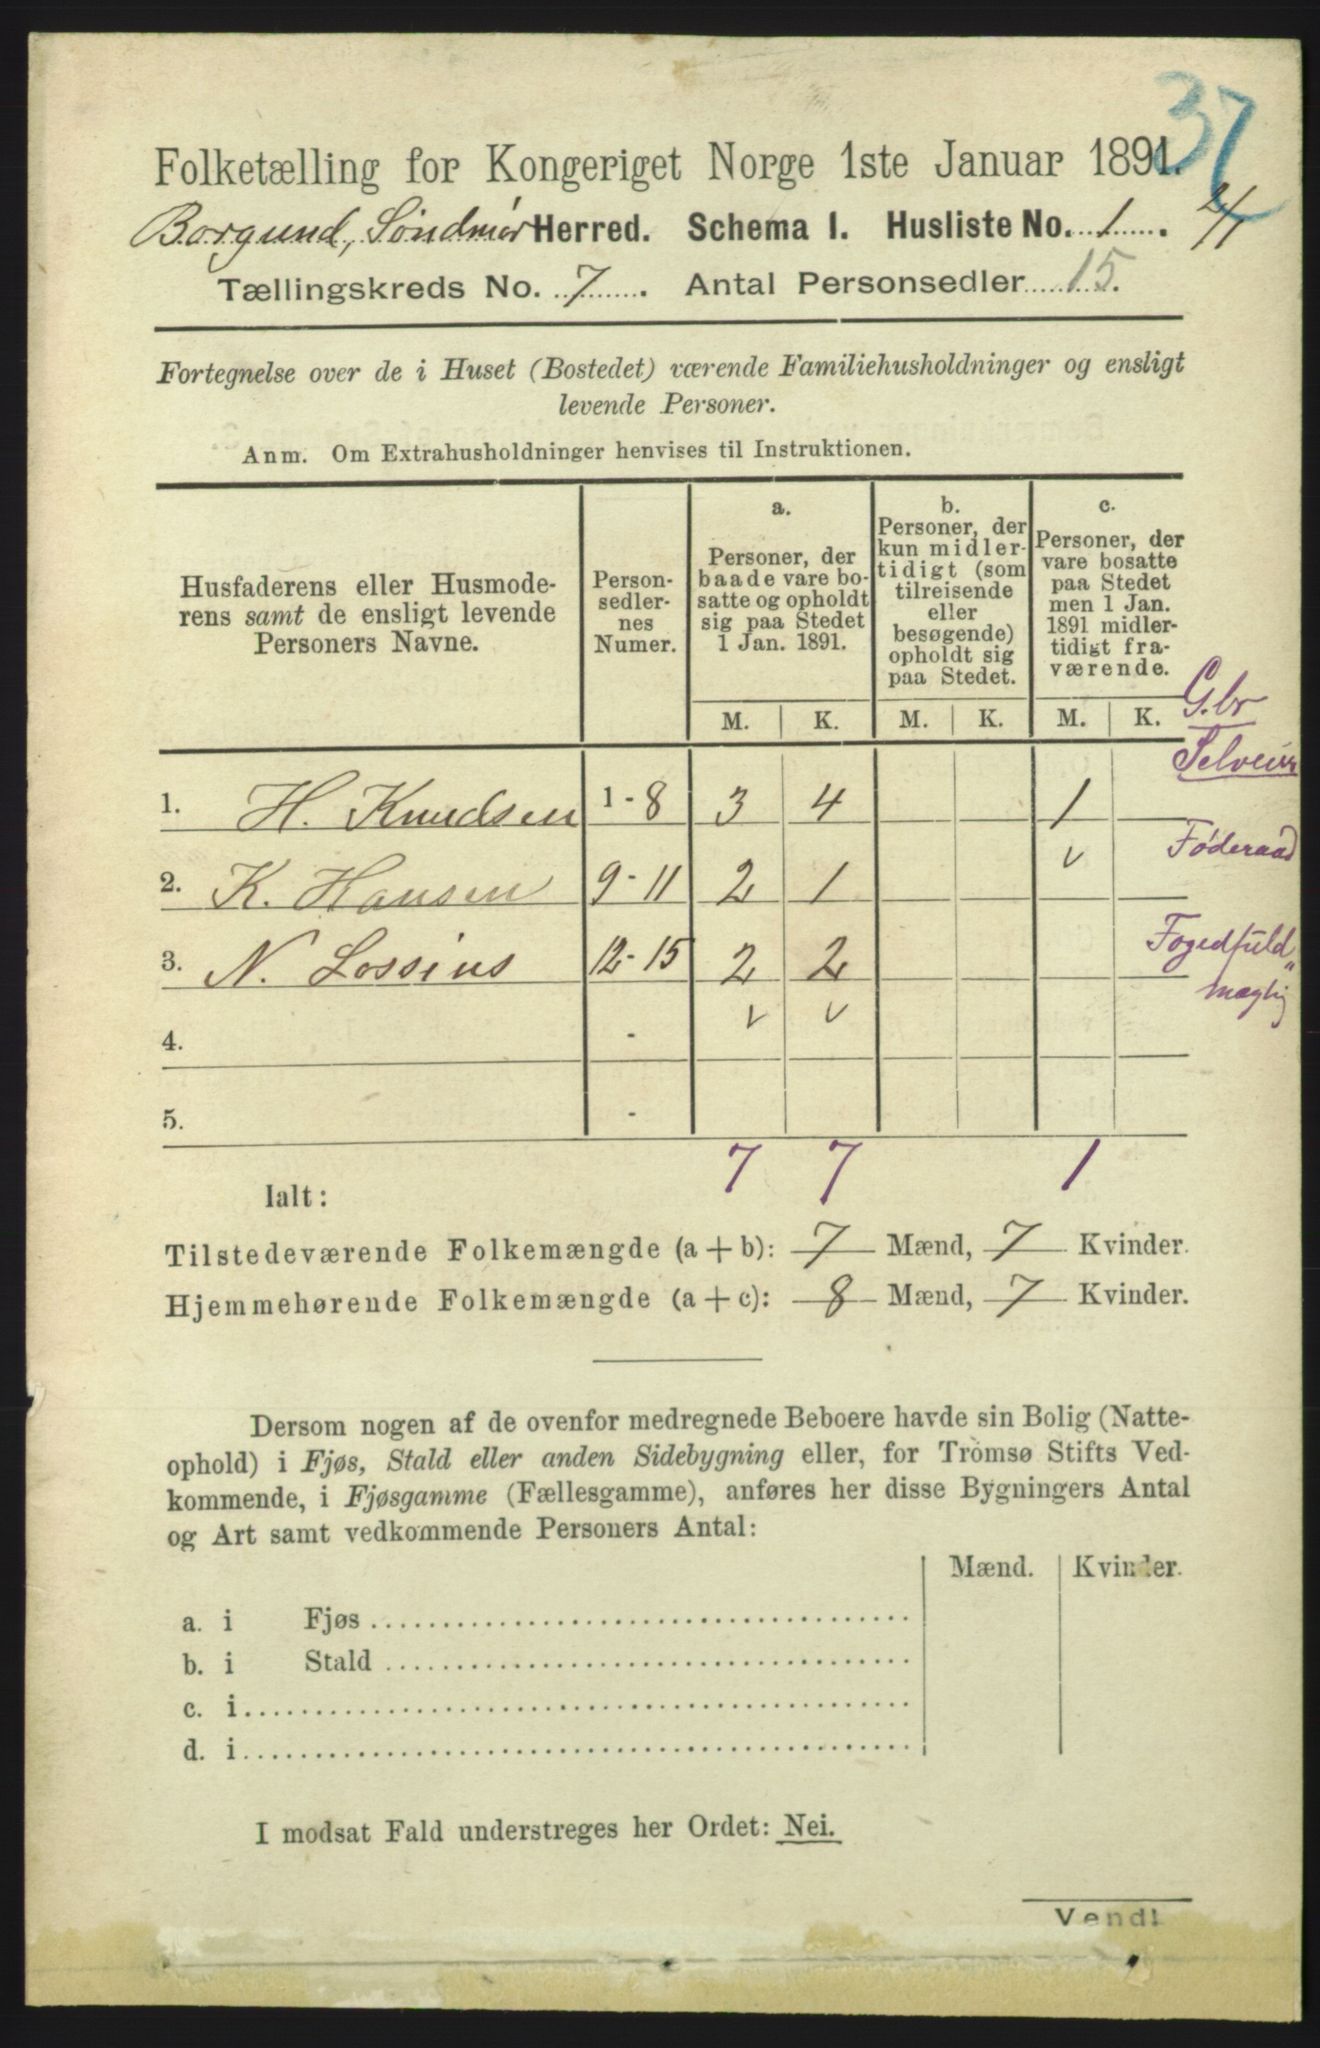 37
Folketælling for Kongeriget Norge 1ste Januar 1891.
Borgund, Søndmør Herred. Schema I. Husliste No. 1.
Tællingskreds No. 7. Antal Personsedler 15.
Fortegnelse over de i Huset (Bostedet) værende Familiehusholdninger og ensligt
levende Personer.
Anm. Om Extrahusholdninger henvises til Instruktionen.
Husfaderens eller Husmode-
rens samt de ensligt levende
Personers Navne.
Person-
sedler-
nes
Numer.
a.
Personer, der
baade vare bo-
satte og opholdt
sig paa Stedet
1 Jan. 1891.
b.
Personer, der
kun midler-
tidigt (som
tilreisende
eller
besøgende)
opholdt sig
paa Stedet.
c.
Personer, der
vare bosatte
paa Stedet
men 1 Jan.
1891 midler-
tidigt fra-
værende.
M. K. M. K. M. K.
G.br
Selveier
1. H. Knudsen 1-8 3 4 1
Føderaad
2. K. Hansen 9-11 2 1
Fogedfuld
mægtig
3. N. Lossius 12-15 2 2
4. -
5. -
7 7 1
Ialt:
Tilstedeværende Folkemængde (a + b): 7 Mænd, 7 Kvinder.
Hjemmehørende Folkemængde (a + c): 8 Mænd, 7 Kvinder.
Dersom nogen af de ovenfor medregnede Beboere havde sin Bolig (Natte-
ophold) i Fjøs, Stald eller anden Sidebygning eller, for Tromsø Stifts Ved-
kommende, i Fjøsgamme (Fællesgamme), anføres her disse Bygningers Antal
og Art samt vedkommende Personers Antal:
Mænd. Kvinder.
a. i Fjøs
b. i Stald
c. i
d. i
I modsat Fald understreges her Ordet: Nei.
Vend!